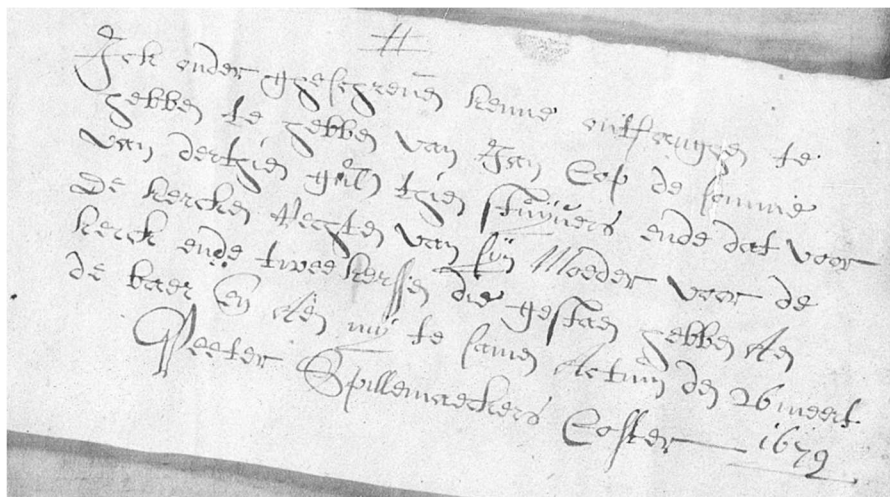 Ick onder ghescreven kenne ontfanghen te
hebben te hebben van Jan Cop de somme
van derthien guln thien stuijvers ende dat voor
de kercken Rechten van sijn Moeder voor de
kerck ende twee kerssen die gestaen hebben Aen
de baer en Aen mij te samen Actum den 26 meert
Peeter Spillemaeckers Coster 1679